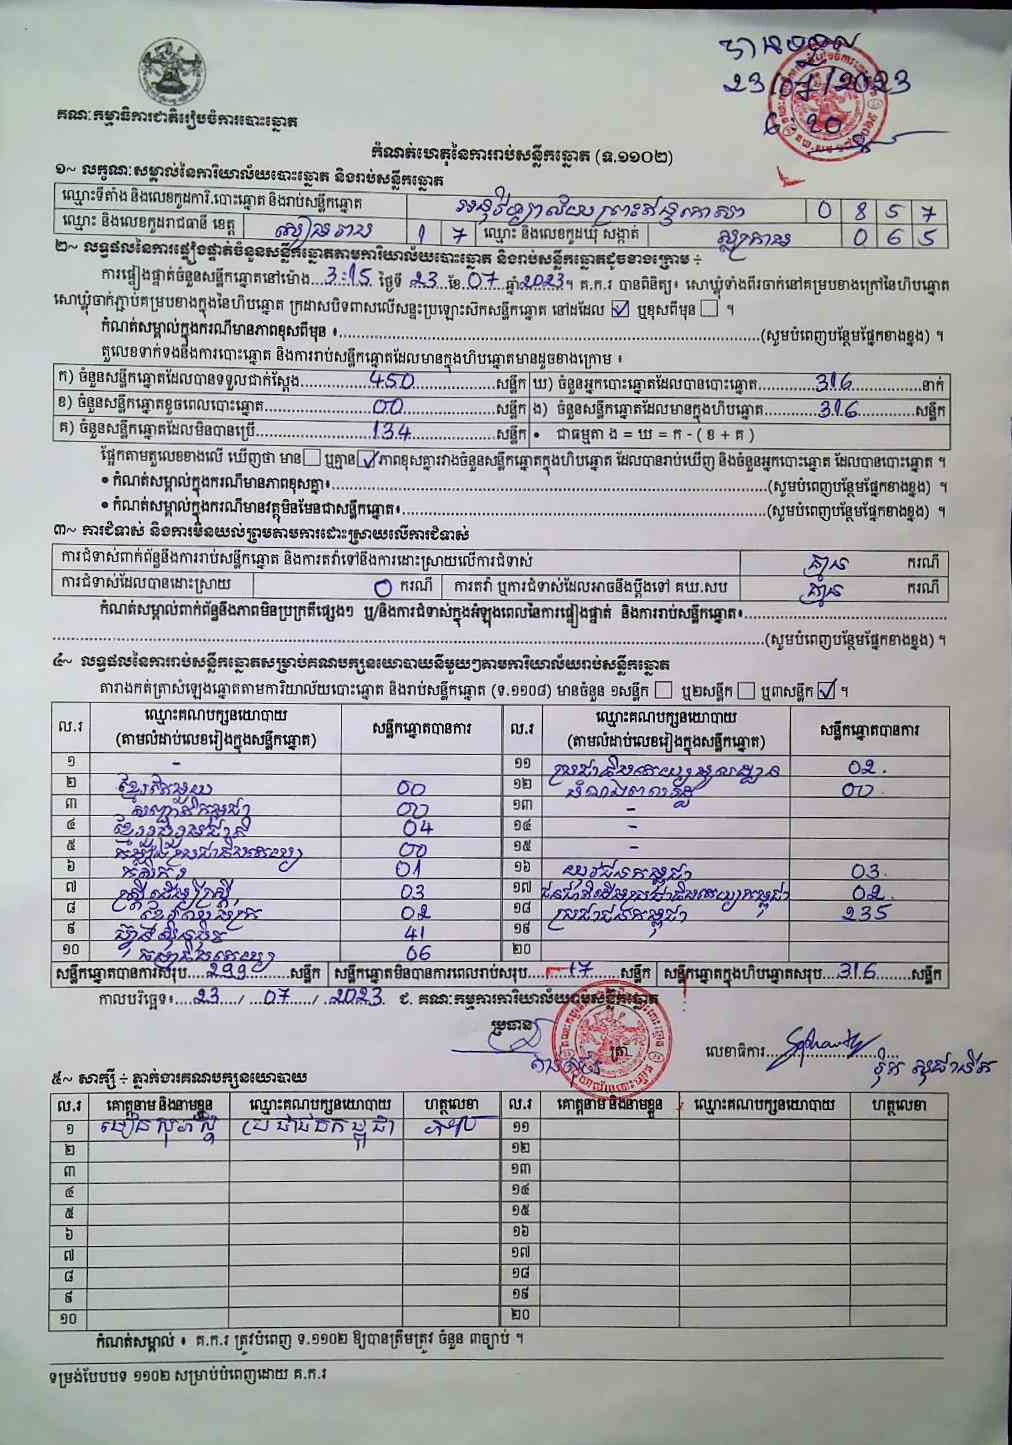 បានទទួល
23/07/2023
6:20
គណៈកម្មាធិការជាតិរៀបចំការបោះឆ្នោត
កំណត់ហេតុនៃការរាប់សន្លឹកឆ្នោត (ទ.១១០២)
១~ លក្ខណៈសម្គាល់នៃការិយាល័យបោះឆ្នោត និងរាប់សន្លឹកឆ្នោត
ឈ្មោះទីតាំង និងលេខកូដការិ.បោះឆ្នោត និងរាប់សន្លឹកឆ្នោត អនុវិទ្យាល័យព្រះឥន្ទកោសា 0 8 5 7
ឈ្មោះ និងលេខកូដរាជធានី ខេត្ត សៀមរាប 1 7 ឈ្មោះ និងលេខកូដឃុំ សង្កាត់ ស្លក្រាម 0 6 5
២~ លទ្ធផលនៃការផ្ទៀងផ្ទាត់ចំនួនសន្លឹកឆ្នោតតាមការិយាល័យបោះឆ្នោត និងរាប់សន្លឹកឆ្នោតដូចខាងក្រោម ÷
ការផ្ទៀងផ្ទាត់ចំនួនសន្លឹកឆ្នោតនៅម៉ោង 3:15 ថ្ងៃទី 23 ខែ 07 ឆ្នាំ 2023 ។ គ.ក.រ បានពិនិត្យ៖ សោឃ្លុំទាំងពីរចាក់នៅគម្របខាងក្រៅនៃហិបឆ្នោត
សោឃ្លុំចាក់ភ្ជាប់គម្របខាងក្នុងនៃហិបឆ្នោត ក្រដាសបិទពាសលើសន្ទះប្រឡោះសិកសន្លឹកឆ្នោត នៅដដែល ☑ ឬខុសពីមុន ☐ ។
កំណត់សម្គាល់ក្នុងករណីមានភាពខុសពីមុន ៖ (សូមបំពេញបន្ថែមផ្នែកខាងខ្នង) ។
តួលេខទាក់ទងនឹងការបោះឆ្នោត និងការរាប់សន្លឹកឆ្នោតដែលមានក្នុងហិបឆ្នោតមានដូចខាងក្រោម ៖
ក) ចំនួនសន្លឹកឆ្នោតដែលបានទទួលជាក់ស្តែង 450 សន្លឹក ឃ) ចំនួនអ្នកបោះឆ្នោតដែលបានបោះឆ្នោត 316 នាក់
ខ) ចំនួនសន្លឹកឆ្នោតខូចពេលបោះឆ្នោត 00 សន្លឹក ង) ចំនួនសន្លឹកឆ្នោតដែលមានក្នុងហិបឆ្នោត 316 សន្លឹក
គ) ចំនួនសន្លឹកឆ្នោតដែលមិនបានប្រើ 134 សន្លឹក • ជាធម្មតា ង = ឃ = ក - ( ខ + គ )
ផ្អែកតាមតួលេខខាងលើ ឃើញថា មាន ☐ ឬគ្មាន ☑ ភាពខុសគ្នារវាងចំនួនសន្លឹកឆ្នោតក្នុងហិបឆ្នោត ដែលបានរាប់ឃើញ និងចំនួនអ្នកបោះឆ្នោត ដែលបានបោះឆ្នោត ។
• កំណត់សម្គាល់ក្នុងករណីមានភាពខុសគ្នា៖ (សូមបំពេញបន្ថែមផ្នែកខាងខ្នង) ។
• កំណត់សម្គាល់ក្នុងករណីមានវត្ថុមិនមែនជាសន្លឹកឆ្នោត៖ (សូមបំពេញបន្ថែមផ្នែកខាងខ្នង) ។
៣~ ការជំទាស់ និងការមិនយល់ព្រមតាមការដោះស្រាយលើការជំទាស់
ការជំទាស់ពាក់ព័ន្ធនឹងការរាប់សន្លឹកឆ្នោត និងការតវ៉ាទៅនឹងការដោះស្រាយលើការជំទាស់ គ្មាន ករណី
ការជំទាស់ដែលបានដោះស្រាយ 0 ករណី ការតវ៉ា ឬការជំទាស់ដែលអាចនឹងប្តឹងទៅ គឃ.សប គ្មាន ករណី
កំណត់សម្គាល់ពាក់ព័ន្ធនឹងភាពមិនប្រក្រតីផ្សេងៗ ឬ/និងការជំទាស់ក្នុងអំឡុងពេលនៃការផ្ទៀងផ្ទាត់ និងការរាប់សន្លឹកឆ្នោត៖
(សូមបំពេញបន្ថែមផ្នែកខាងខ្នង) ។
៤~ លទ្ធផលនៃការរាប់សន្លឹកឆ្នោតសម្រាប់គណបក្សនយោបាយនីមួយៗតាមការិយាល័យរាប់សន្លឹកឆ្នោត
តារាងកត់ត្រាសំឡេងឆ្នោតតាមការិយាល័យបោះឆ្នោត និងរាប់សន្លឹកឆ្នោត (ទ.១១០៨) មានចំនួន ១សន្លឹក ☐ ឬ២សន្លឹក ☐ ឬ៣សន្លឹក ☑ ។
ល.រ ឈ្មោះគណបក្សនយោបាយ សន្លឹកឆ្នោតបានការ ល.រ ឈ្មោះគណបក្សនយោបាយ សន្លឹកឆ្នោតបានការ
(តាមលំដាប់លេខរៀងក្នុងសន្លឹកឆ្នោត) (តាមលំដាប់លេខរៀងក្នុងសន្លឹកឆ្នោត)
១ - ១១ ប្រជាធិបតេយ្យមូលដ្ឋាន 02.
២ ខ្មែរតែមួយ 00 ១២ 00.
៣ សញ្ជាតិកម្ពុជា 00 ១៣ -
៤ ខ្មែររួបរួមជាតិ 04 ១៤ -
៥ កម្លាំងប្រជាធិបតេយ្យ 00 ១៥ -
៦ កសិករ 01 ១៦ យុវជនកម្ពុជា 03.
៧ ស្ត្រីដើម្បីស្ត្រី 03 ១៧ ជនជាតិដើមប្រជាធិបតេយ្យកម្ពុជា 02.
៨ ខ្មែរឈប់ក្រ 02 ១៨ ប្រជាជនកម្ពុជា 235
៩ ហ្វ៊ុនស៊ិនប៉ិច 41 ១៩
១០ 06 ២០
សន្លឹកឆ្នោតបានការសរុប 299 សន្លឹក សន្លឹកឆ្នោតមិនបានការពេលរាប់សរុប 17 សន្លឹក សន្លឹកឆ្នោតក្នុងហិបឆ្នោតសរុប 316 សន្លឹក
កាលបរិច្ឆេទ៖ 23 / 07 / 2023 ជ. គណៈកម្មការការិយាល័យរាប់សន្លឹកឆ្នោត
ប្រធាន
ត្រា លេខាធិការ
៥~ សាក្សី ÷ ភ្នាក់ងារគណបក្សនយោបាយ
ល.រ គោត្តនាម និងនាមខ្លួន ឈ្មោះគណបក្សនយោបាយ ហត្ថលេខា ល.រ គោត្តនាម និងនាមខ្លួន ឈ្មោះគណបក្សនយោបាយ ហត្ថលេខា
១ ប្រជាជនកម្ពុជា ១១
២ ១២
៣ ១៣
៤ ១៤
៥ ១៥
៦ ១៦
៧ ១៧
៨ ១៨
៩ ១៩
១០ ២០
កំណត់សម្គាល់ ៖ គ.ក.រ ត្រូវបំពេញ ទ.១១០២ ឱ្យបានត្រឹមត្រូវ ចំនួន ៣ច្បាប់ ។
ទម្រង់បែបបទ ១១០២ សម្រាប់បំពេញដោយ គ.ក.រ